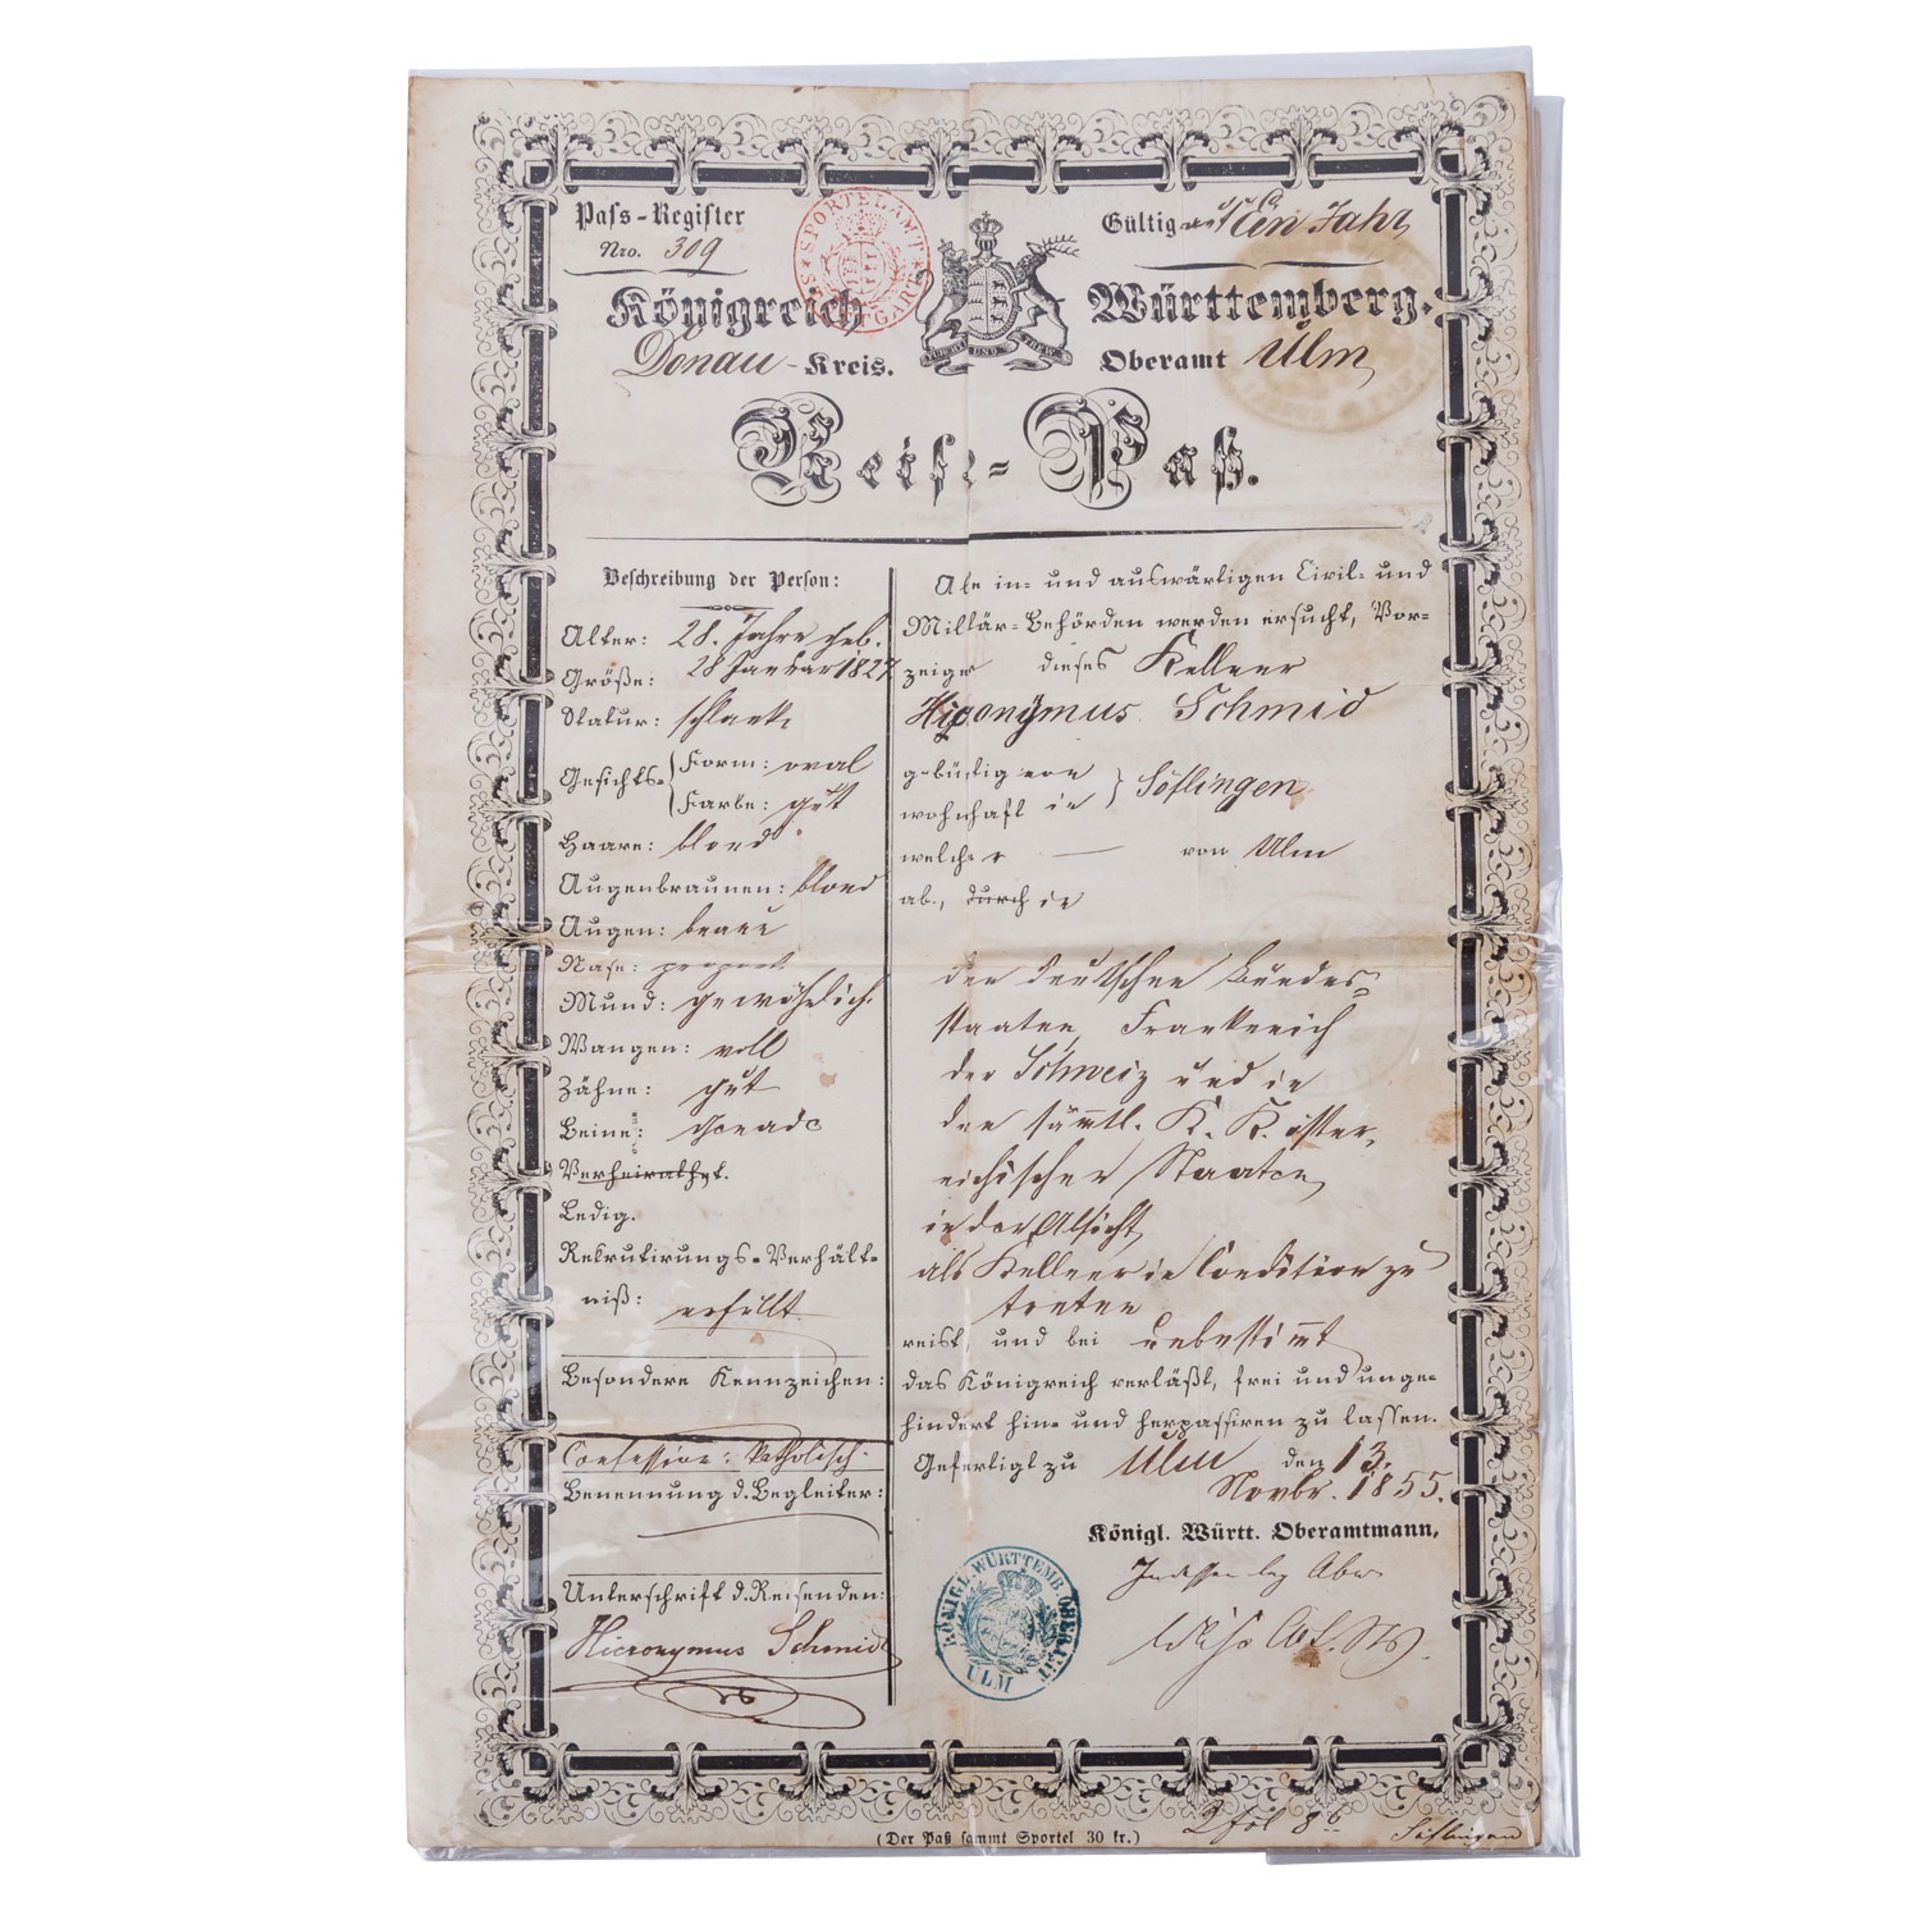 Pass-Register
Nro. 309
SPORTELAMT STUTTGART
Gültig auf Ein Jahr
Königreich Württemberg.
FURCHTLOS UND TREW
Donau-Kreis. Oberamt Ulm
Reise-Paß.
Beschreibung der Person:
Alter: 28. Jahre geb.
28 Januar 1827
Größe:
Statur: schlank
Gesichts- Form: oval
Farbe: gut
Haare: blond
Augenbraunen: blond
Augen: braun
Nase: proport
Mund: gewöhnlich
Wangen: voll
Zähne: gut
Beine: gerade
Verheirathet.
Ledig.
Rekrutirungs-Verhält-
niß: erfüllt
Besondere Kennzeichen:
Confession: katholisch
Benennung d. Begleiter:
Unterschrift d. Reisenden:
Hieronymus Schmid
Alle in- und auswärtigen Civil- und
Militär-Behörden werden ersucht, Vor-
zeiger dieses Kellner
Hieronÿmus Schmid
gebürtig von
wohnhaft in } Söflingen
welcher — von Ulm
ab., durch in
den deutschen Bundes-
staaten, Frankreich
der Schweiz und in
den sämtl. K. K. öster-
reichischen Staaten
in der Absicht,
als Kellner in Condition zu
treten
reist, und bei unbestimmt
das Königreich verläßt, frei und unge-
hindert hin- und herpassiren zu lassen.
Gefertigt zu Ulm den 13.
Novbr. 1855.
Königl. Württ. Oberamtmann,
KÖNIGL. WÜRTTEMB. OBERAMT ULM
(Der Paß sammt Sportel 30 kr.)
Söflingen